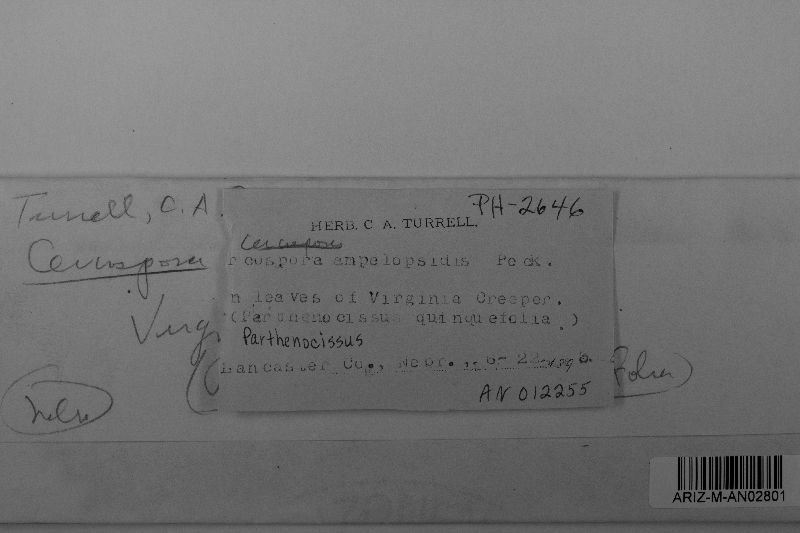 Turrell, C. A.
Cercospora
Virg
Nebr
folia)
PH-2646
HERB. C A. TURRELL.
Cercospora
rcospora ampelopsidis Peck.
n leaves of Virginia Creeper.
(Parthenocissus quinquefolia.)
Parthenocissus
Lancaster Co., Nebr., 6-22-
AN 012255
ARIZ-M-AN02801